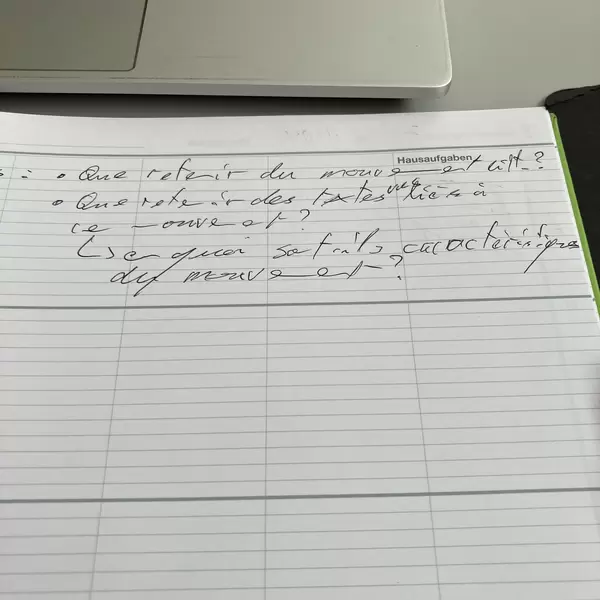 Hausaufgaben
: • Que retenir du mouvement litt.?
• Que retenir des textes vus liés à
ce mouvement?
↳ en quoi sont-ils caractéristiques
du mouvement?